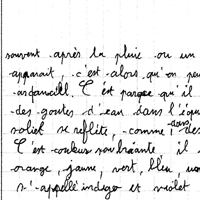 souvent après la pluie ou un
apparait, c'est alors qu'on peu
arcenciell. C'est parceque qu'il
des goutes d'eau dans l'équ
soliel se reflète, comme dans des
C'est couleurs sont il
orange, jaune, vert, bleu, un
s'appelle indego et violet